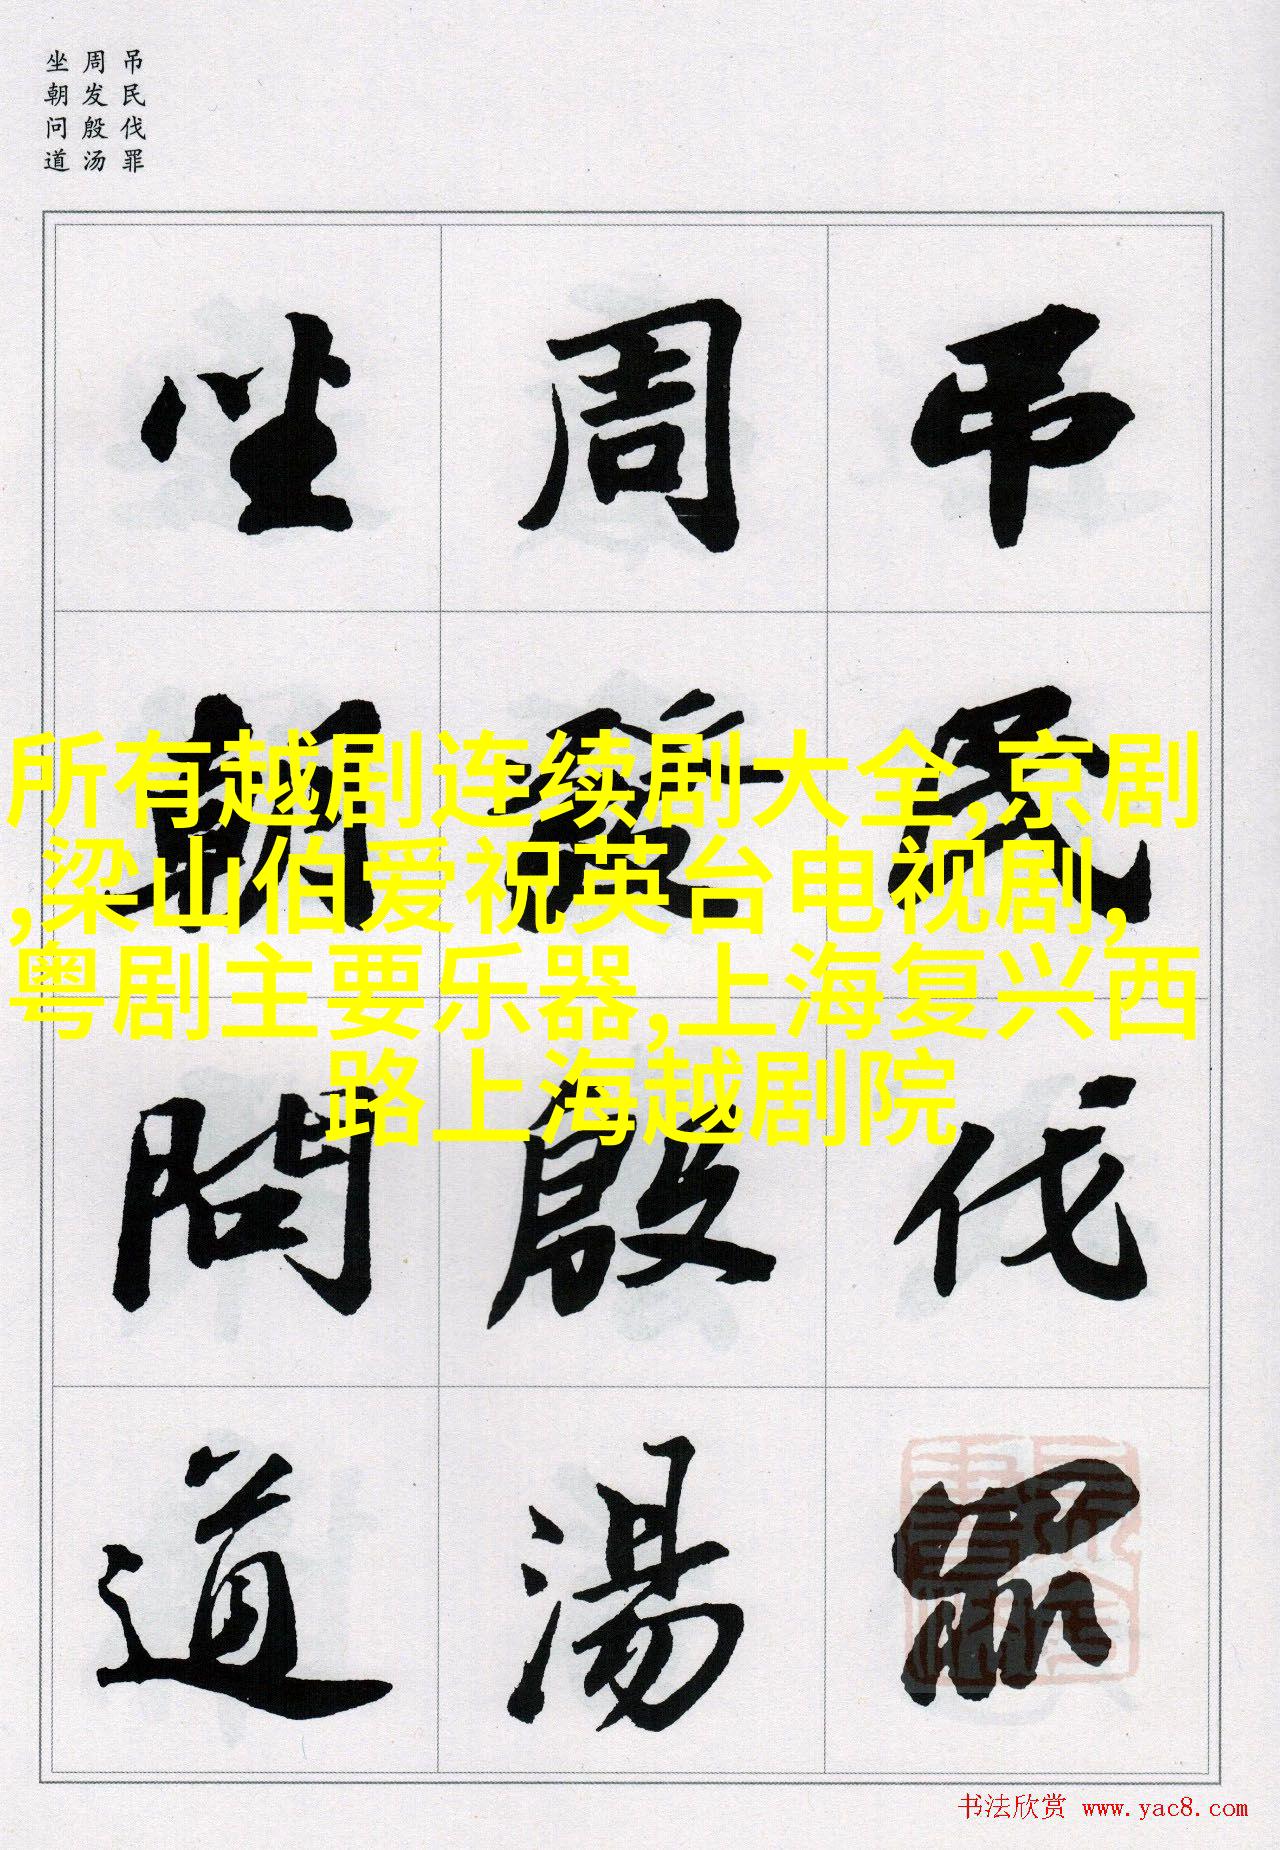 吊民伐罪
周发殷汤
坐朝问道
吊民伐罪
周發殷湯
坐朝問道
所有越剧连续剧大全,京剧
,梁山伯爱祝英台电视剧,
粤剧主要乐器,上海复兴西
路上海越剧院
书法欣赏 www.yac8.com